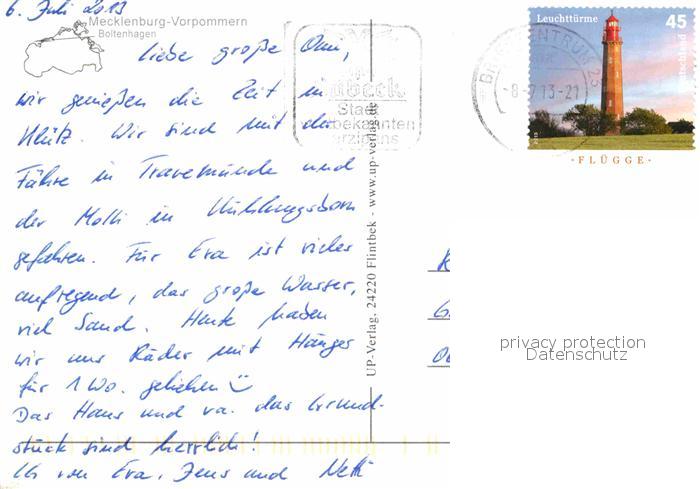 6. Juli 2013
Mecklenburg-Vorpommern
Boltenhagen
Liebe große Omi,
wir genießen die Zeit in
Klütz. Wir sind mit der
Fähre in Travemünde und
der Molli in Kühlungsborn
gefahren. Für Eva ist vieles
aufregend, das große Wasser,
viel Sand. Heute haben
wir uns Räder mit Hänger
für 1 Wo. geliehen
Das Haus und va. das Grund-
stück sind herrlich!
Ihr von Eva, Jens und Netti
UP-Verlag, 24220 Flintbek - www.up-verlag.de
Lübeck
Stadt
bekannten
arzipans
BRIEFZENTRUM 23
-8-7 13-21
Leuchttürme
45
Deutschland
2013
·FLÜGGE·
privacy protection
Datenschutz